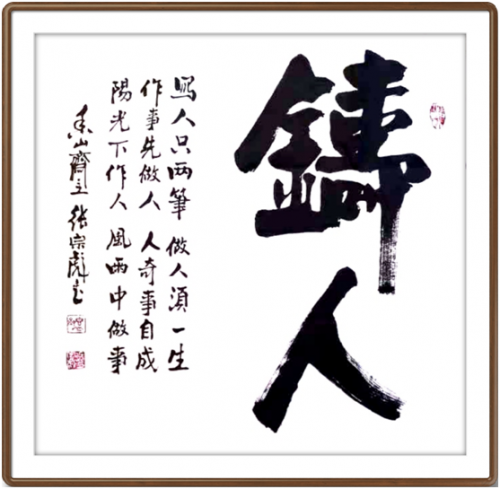 鑄人
寫人只兩筆 做人須一生
作事先做人 人奇事自成
陽光下作人 風雨中做事
山齋主 张宗彪书